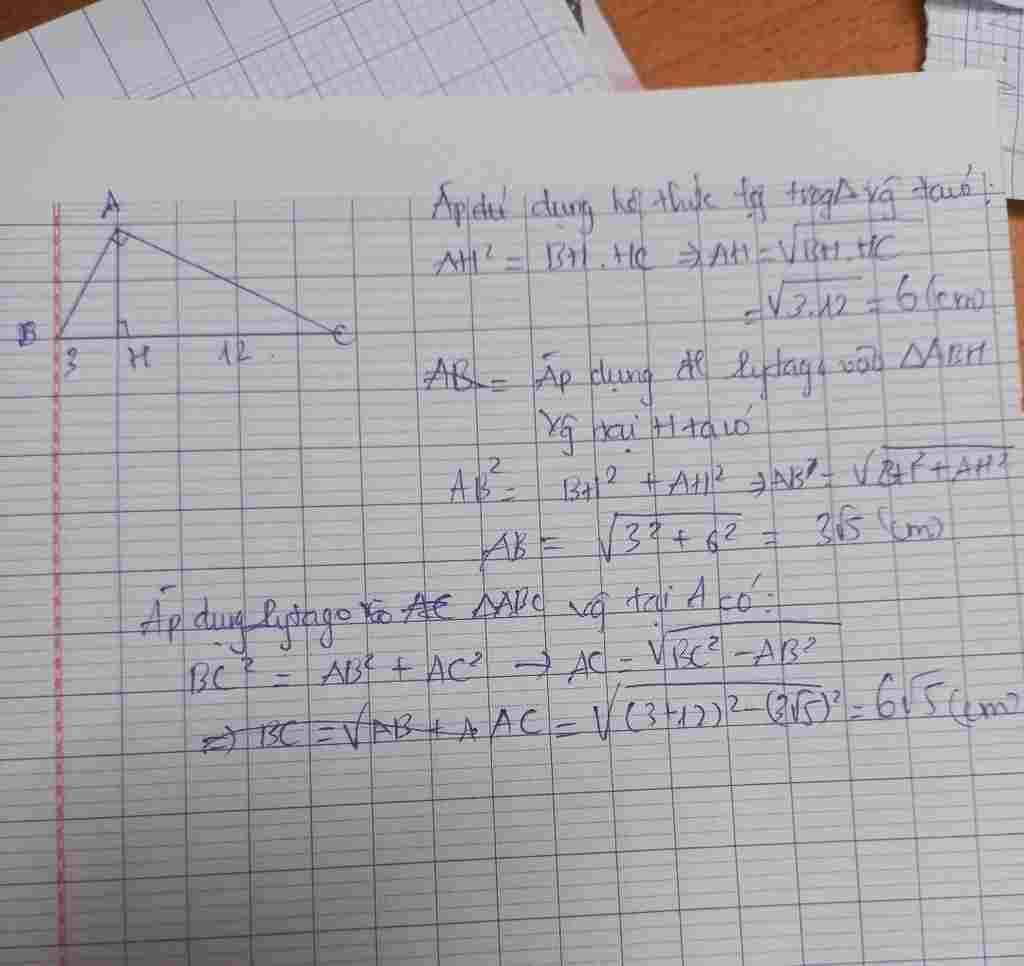 A
B
3
H
12
C
Áp dụng hệ thức lg trog Δ vg ta có:
AH² = BH . HC ⇒ AH = √BH . HC
= √3.12 = 6 (cm)
AB = Áp dụng đl Pytago vào ΔABH
vg tại H ta có
AB² = BH² + AH² ⇒ AB = √BH² + AH²
AB = √3² + 6² = 3√5 (cm)
Áp dụng Pytago ΔABC vg tại A có:
BC² = AB² + AC² → AC = √BC² - AB²
⇒ BC = √AB + A AC = √(3+12)² - (3√5)² = 6√5 (cm)